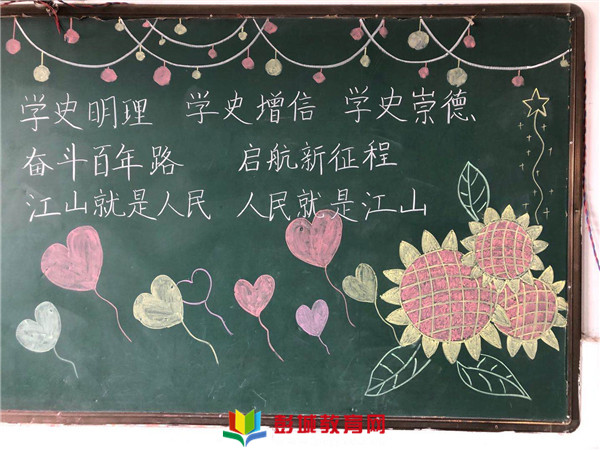 学史明理 学史增信 学史崇德
奋斗百年路 启航新征程
江山就是人民 人民就是江山
彭城教育网